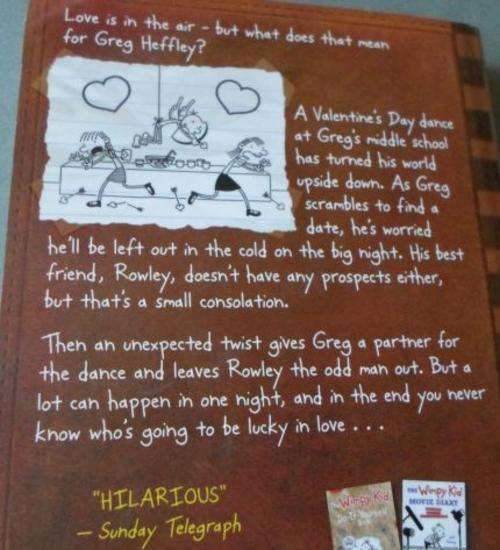 Love is in the air - but what does that mean
for Greg Heffley?
A Valentine's Day dance
at Greg's middle school
has turned his world
upside down. As Greg
scrambles to find a
date, he's worried
he'll be left out in the cold on the big night. His best
friend, Rowley, doesn't have any prospects either,
but that's a small consolation.
Then an unexpected twist gives Greg a partner for
the dance and leaves Rowley the odd man out. But a
lot can happen in one night, and in the end you never
know who's going to be lucky in love . . .
"HILARIOUS"
- Sunday Telegraph
Wimpy Kid
THE Wimpy Kid
MOVIE DIARY